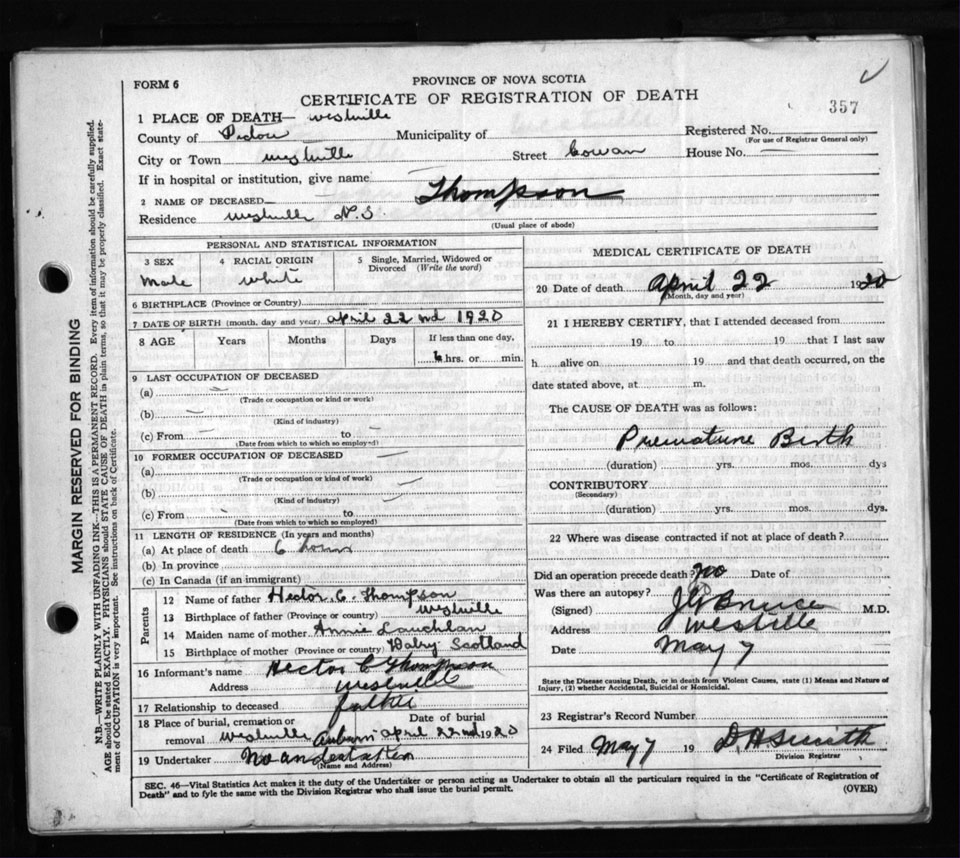 FORM 6
PROVINCE OF NOVA SCOTIA
CERTIFICATE OF REGISTRATION OF DEATH
357
1 PLACE OF DEATH— Westville
County of Pictou Municipality of
Registered No.
(For use of Registrar General only)
City or Town Westville Street Cowan House No. —
If in hospital or institution, give name —
2 NAME OF DECEASED Thompson
Residence Westville N.S
(Usual place of abode)
PERSONAL AND STATISTICAL INFORMATION
3 SEX
Male
4 RACIAL ORIGIN
white
5 Single, Married, Widowed or
Divorced (Write the word)
6 BIRTHPLACE (Province or Country)
7 DATE OF BIRTH (month, day and year) April 22nd 1920
8 AGE Years Months Days If less than one day,
6 hrs. or min.
9 LAST OCCUPATION OF DECEASED
(a) —
(Trade or occupation or kind or work)
(b) —
(Kind of industry)
(c) From — to —
(Date from which to which so employed)
10 FORMER OCCUPATION OF DECEASED —
(a)
(Trade or occupation or kind of work)
(b) —
(Kind of industry)
(c) From — to
(Date from which to which so employed)
11 LENGTH OF RESIDENCE (In years and months)
(a) At place of death 6 hours
(b) In province
(c) In Canada (if an immigrant)
Parents
12 Name of father Hector C. Thompson
13 Birthplace of father (Province or country) Westville
14 Maiden name of mother Annie Lauchlan
15 Birthplace of mother (Province or country) Scotland
16 Informant's name Hector C Thompson
Address Westville
17 Relationship to deceased father
18 Place of burial, cremation or
removal Westville Auburn
Date of burial
April 22nd 1920
19 Undertaker No
(Name and Address)
MEDICAL CERTIFICATE OF DEATH
20 Date of death April 22 1920
(Month, day and year)
21 I HEREBY CERTIFY, that I attended deceased from
19 to 19 that I last saw
h alive on 19 and that death occurred, on the
date stated above, at m.
The CAUSE OF DEATH was as follows:
Premature Birth
(duration) yrs. mos. dys
CONTRIBUTORY
(Secondary)
(duration) yrs. mos. dys.
22 Where was disease contracted if not at place of death?
Did an operation precede death? No Date of
Was there an autopsy?
(Signed) Bruce M.D.
Address Westville
Date May 7
State the Disease causing Death, or in death from Violent Causes, state (1) Means and Nature of
Injury, (2) whether Accidental, Suicidal or Homicidal.
23 Registrar's Record Number
24 Filed May 7 19 D. H. Smith
Division Registrar
SEC. 46—Vital Statistics Act makes it the duty of the Undertaker or person acting as Undertaker to obtain all the particulars required in the "Certificate of Registration of
Death" and to fyle the same with the Division Registrar who shall issue the burial permit.
(OVER)
MARGIN RESERVED FOR BINDING
N.B.—WRITE PLAINLY WITH UNFADING INK—THIS IS A PERMANENT RECORD. Every item of information should be carefully supplied.
AGE should be stated EXACTLY. PHYSICIANS should STATE CAUSE OF DEATH in plain terms, so that it may be properly classified. Exact state-
ment of OCCUPATION is very important. See instructions on back of Certificate.